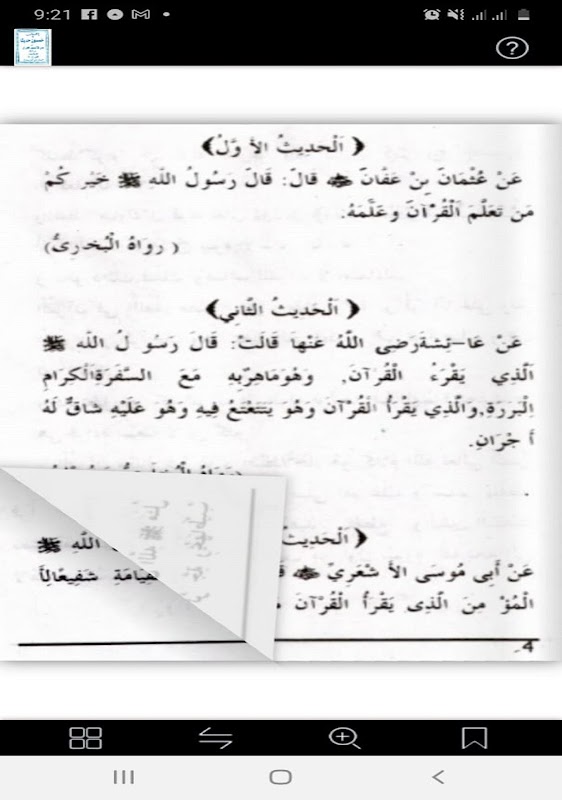 9:21
﴿ اَلْحَدِيثُ الأَ وَّلُ﴾
عَنْ عُثْمَانَ بِنْ عَفَّانَ ﷺ قَالَ: قَالَ رَسُولُ اللّهِ ﷺ خَيْر كُمْ
مَنْ تَعَلَّمَ اَلْقُرْآنَ وَعَلَّمَهُ:
( رواهُ الْبُخارىُّ)
﴿ اَلْحَدِيثُ الثَّانِي﴾
عَنْ عَا-ئِشةَرَضِى اللّهُ عَنْهاَ قَالَتْ: قَالَ رَسُو لُ اللّهِ ﷺ
اَلَّذِي يَقْرَءُ الْقُرْآنَ, وَهُوَمَاهِرٌبِهِ مَعَ السَّفَرَةِالْكِرَامِ
اِلْبَررَةِ,وَالَّذِي يَقْرَأُ الْقُرْآنَ وَهُوَ يَتَتَعْتَعُ فِيهِ وَهُوَ عَلَيْهِ شَاقٌّ لَهُ
أَ جْرَانِ.
﴿ اَلْحَدِيثُ
اللّهِ ﷺ
عَنْ أَبِى مُوسَى الأَ شْعَرِيِّ
شَفِيعًالِاَ
الْمُؤْ مِنَ الَّذِى يَقْرَأُ الْقُرْآنَ
4-